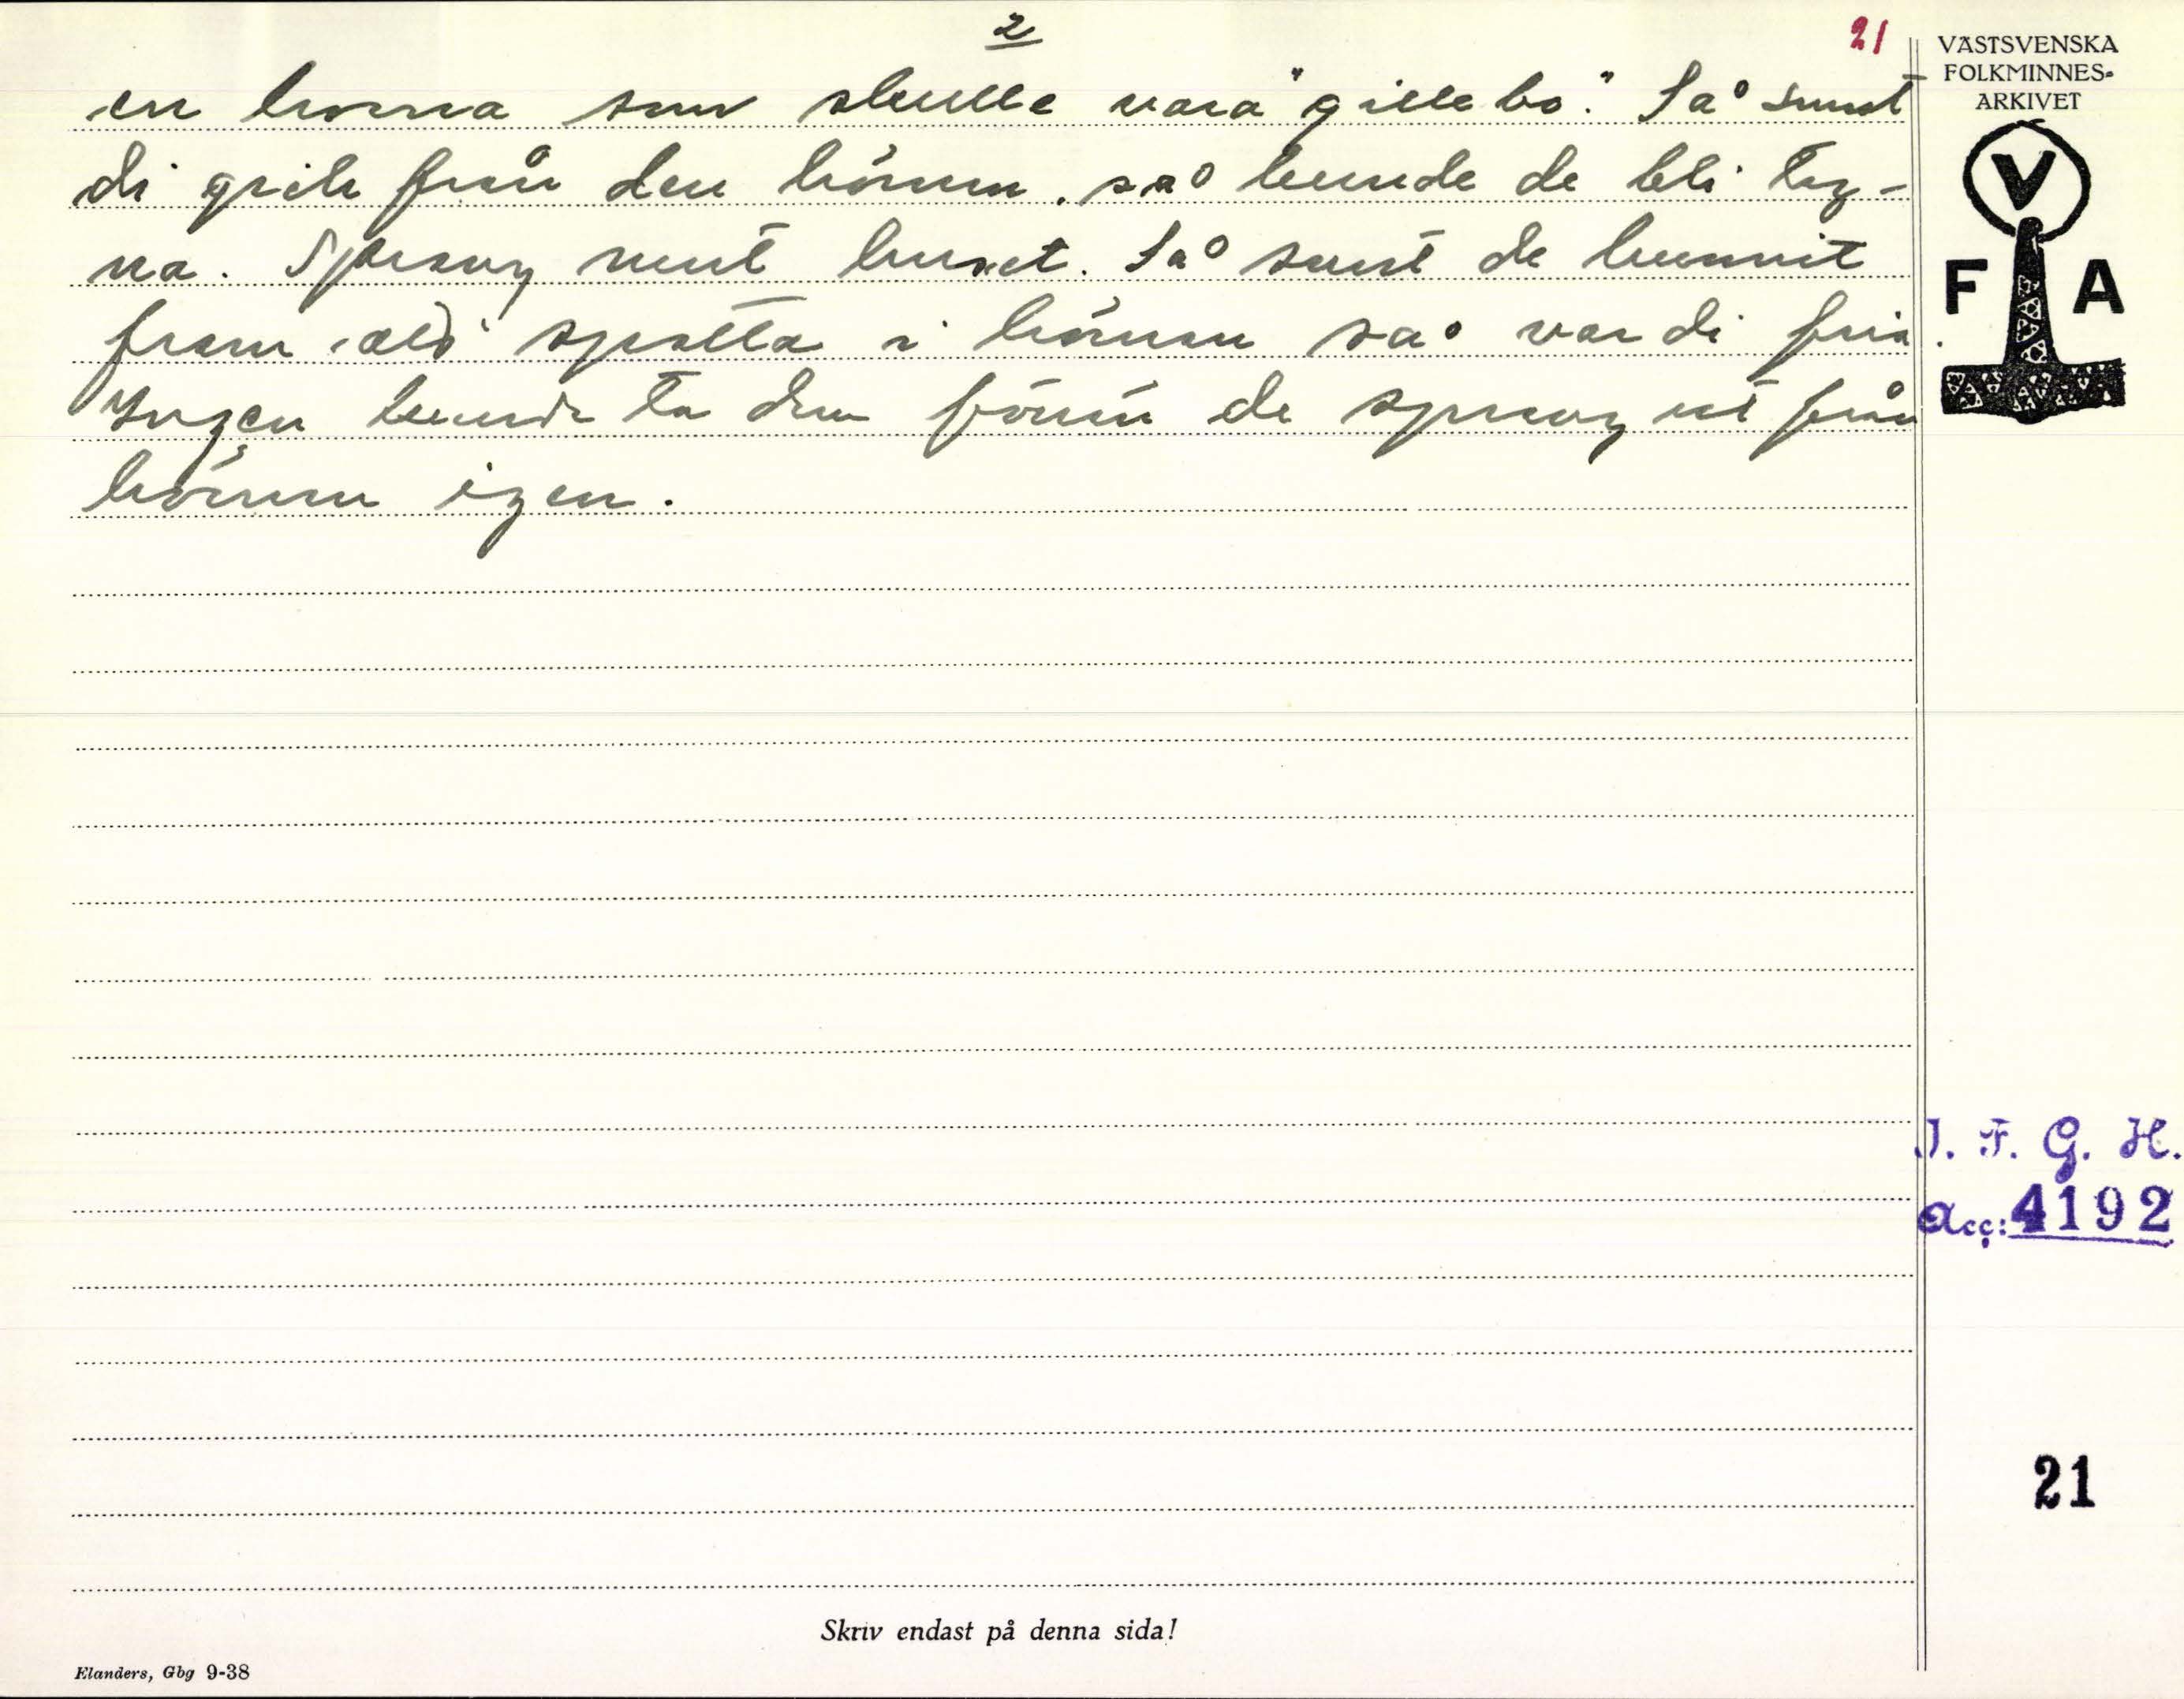 2
21
en horna som skulle vara "gillebo". Så snart
di gick från den hörnan, så kunde de bli tag-
na. Sprang runt huset. Så snart de hunnit
fram och spotta i hörnan så var di fria.
Ingen kunde ta dem förrn de sprang ut från
hörnan igen.
VÄSTSVENSKA
FOLKMINNES-
ARKIVET
V
F A
I. F. G. H.
Acc: 4192
21
Skriv endast på denna sida!
Elanders, Gbg 9-38